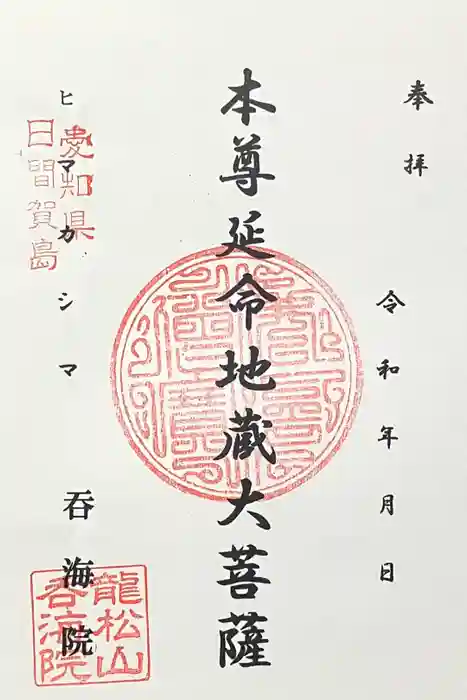 奉拝
令和年月日
本尊延命地蔵大菩薩
ヒマカシマ
呑海院
愛知県
日間賀島
龍松山
呑海院